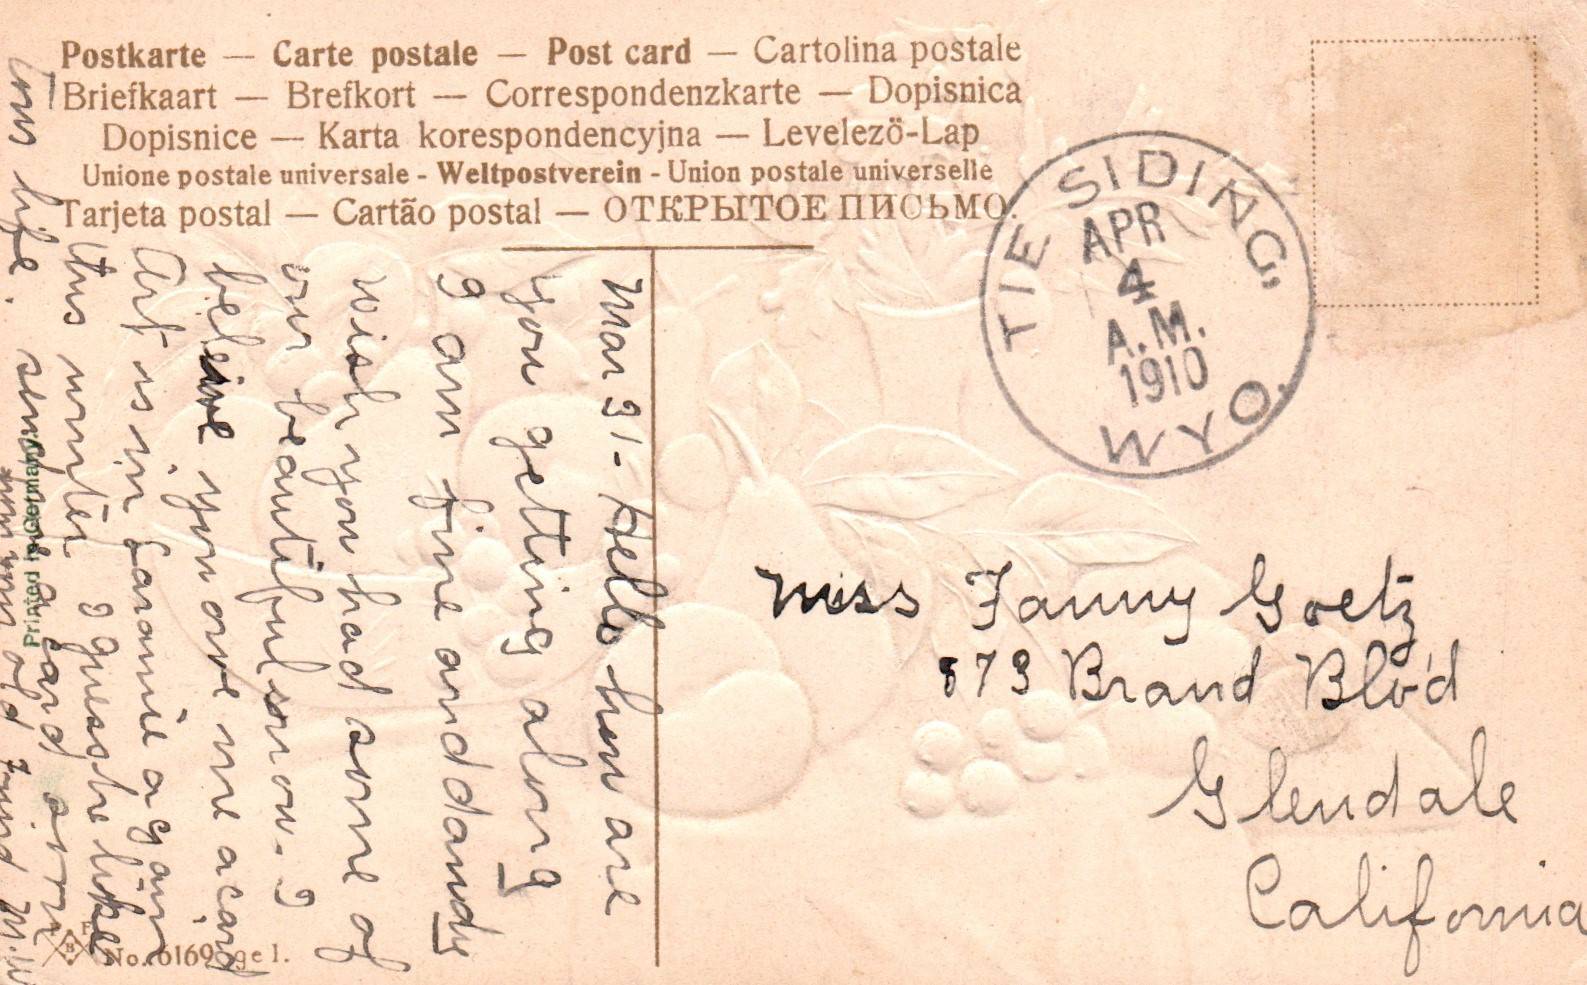 Postkarte — Carte postale — Post card — Cartolina postale
Briefkaart — Brefkort — Correspondenzkarte — Dopisnica
Dopisnice — Karta korespondencyjna — Levelező-Lap
Unione postale universale - Weltpostverein - Union postale universelle
Tarjeta postal — Cartão postal — ОТКРЫТОЕ ПИСЬМО.
TIE SIDING,
APR
4
A.M.
1910
WYO.
Mar 31- Hello how are
you getting along
I am fine and dandy
wish you had some of
our beautiful snow. I
beleive you owe me a card
Art is in Laramie again
this winter I guess he likes
town life. send a card soon
Miss Fanny Goetz
873 Brand Blv'd
Glendale
California
Printed in Germany.
B
No. 6169